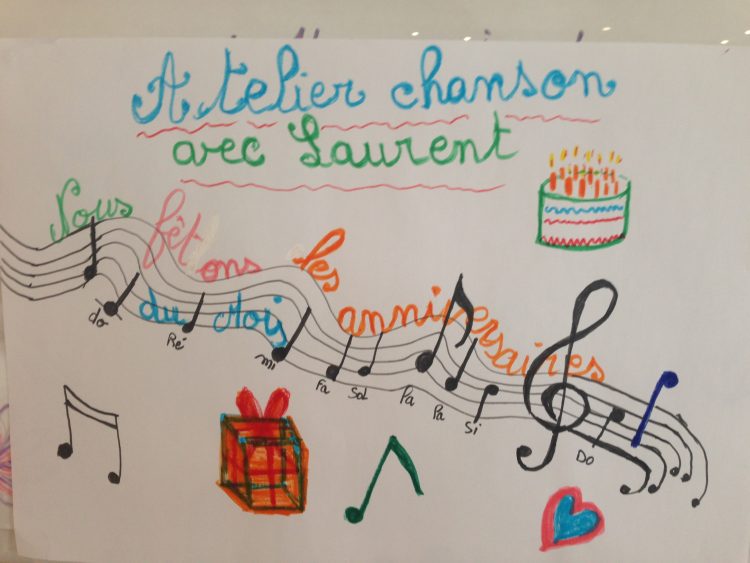 Atelier chanson
avec Laurent
Nous fêtons les anniversaires
du Mois
do Ré mi Fa Sol La La Si Do